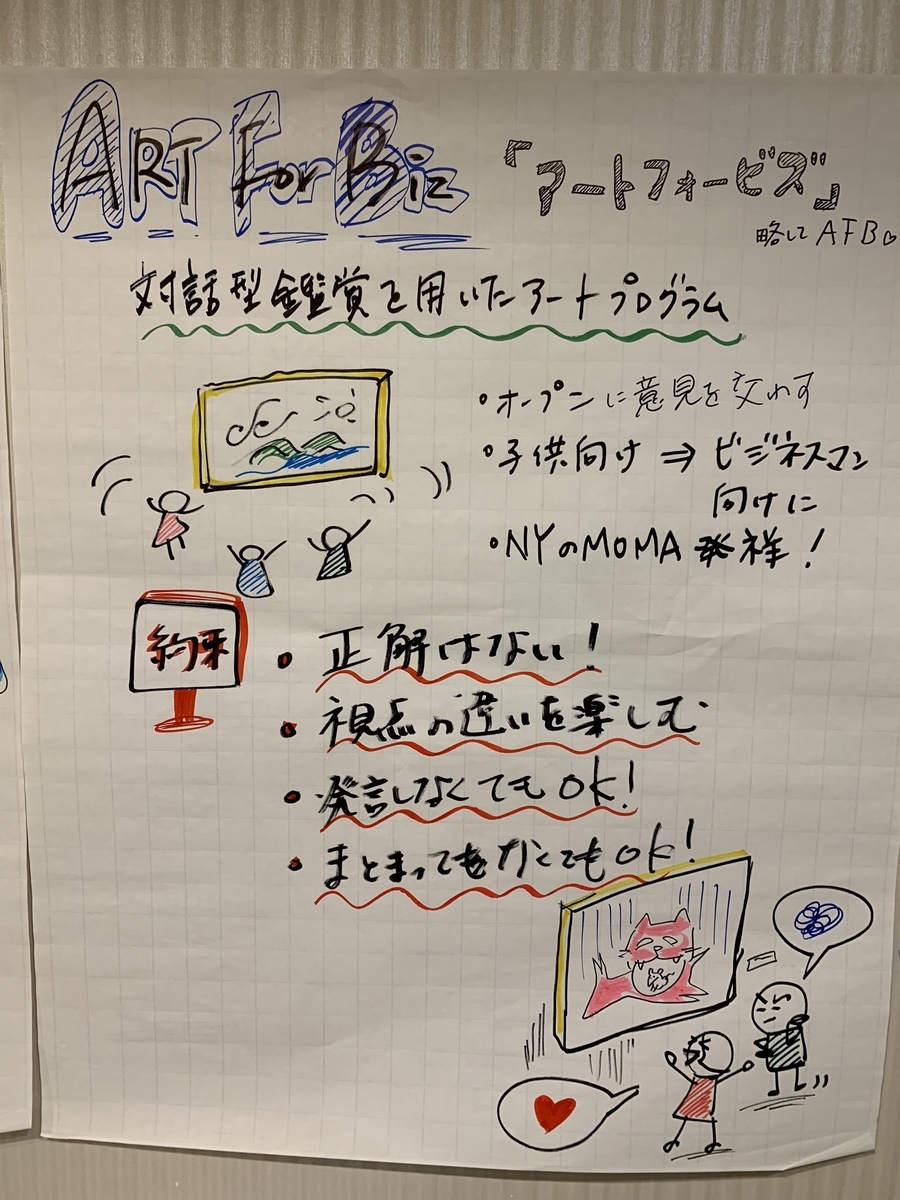 ART For Biz
『アートフォービズ』
略して AFB♡
対話型鑑賞を用いたアートプログラム
・オープンに意見を交わす
・子供向け ⇒ ビジネスマン
向けに
・NYのMOMA 発祥！
約束
・正解はない！
・視点の違いを楽しむ
・発言しなくてもOK！
・まとまってなくてもOK！